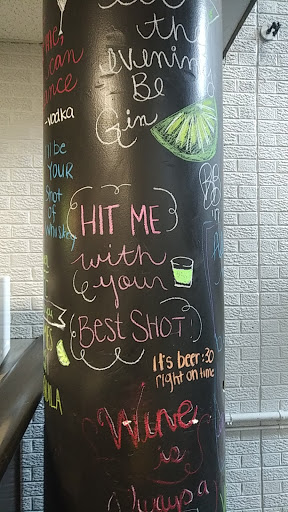 the
evening
Be
Gin
can
-vodka
I'll be
YOUR
Shot
of
Whiskey
HIT ME
with
your
Best SHOT
It's beer:30
right on time
Wine
is
Always a